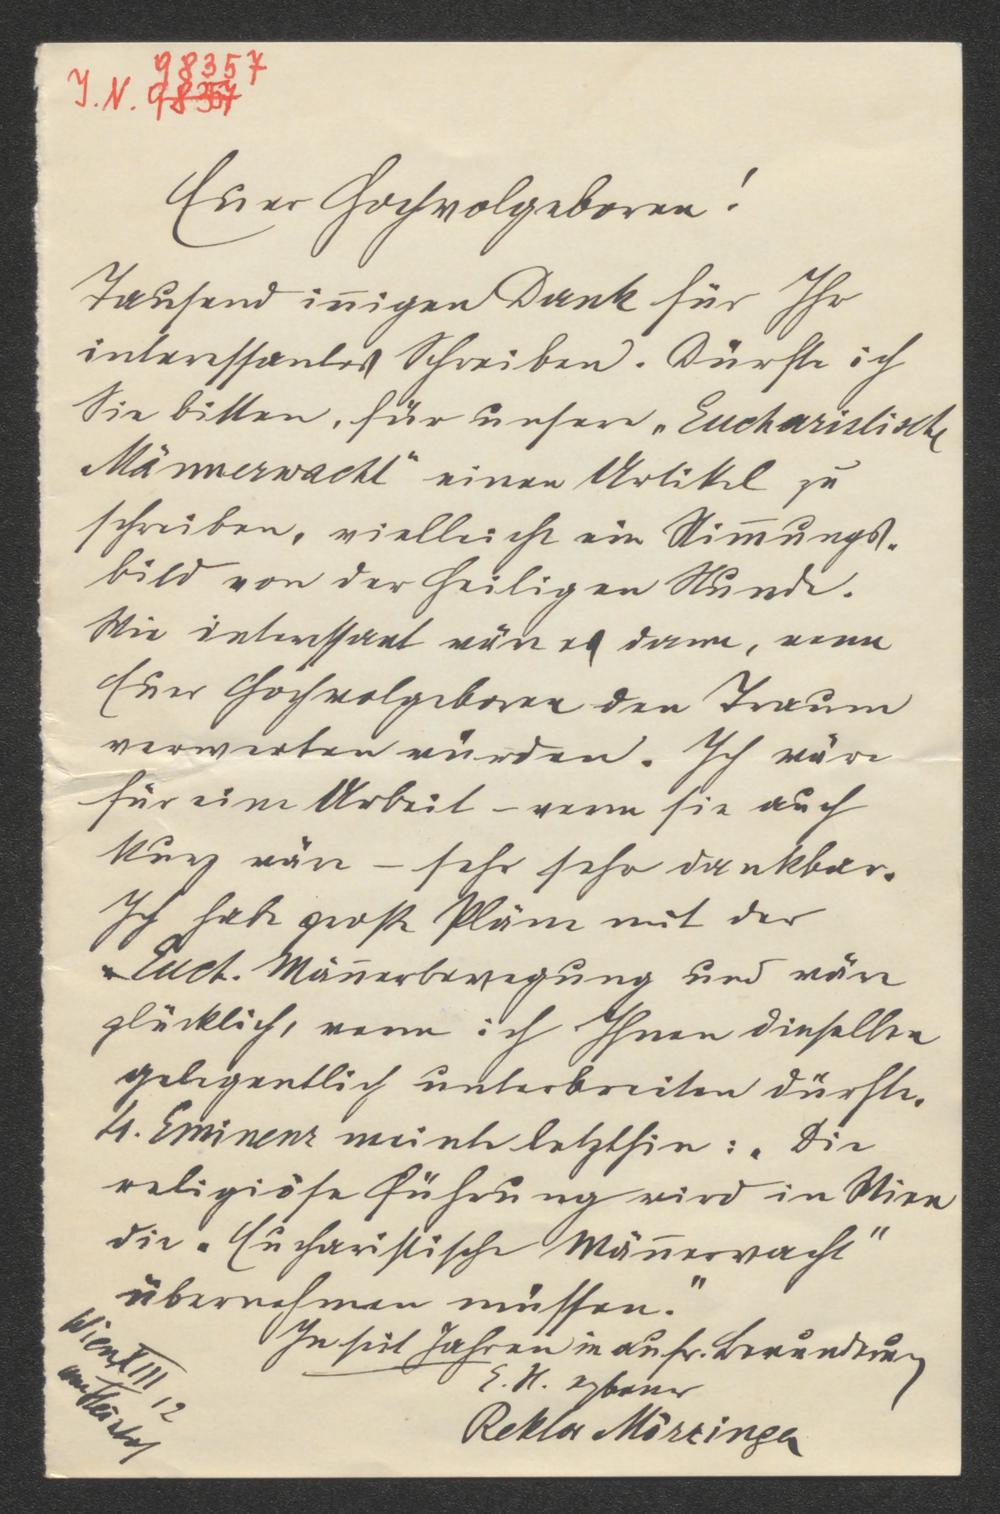 J. N. 98357
98357
Euer Hochwolgeboren!
Tausend iñigen Dank für Ihr
interessantes Schreiben. Dürfte ich
Sie bitten, für unsere „Eucharistische
Männerwacht“ einen Artikel zu
schreiben, vielleicht ein Stim̄ungs-
bild von der heiligen Stunde.
Wie interessant wäre es dann, wenn
Euer Hochwolgeboren den Traum
verwerten würden. Ich wäre
für eine Arbeit – wenn sie auch
kurz wäre – sehr sehr dankbar.
Ich habe große Pläne mit der
„Euch. Mäñerbewegung und wäre
glücklich, wenn ich Ihnen dieselben
gelegentlich unterbreiten dürfte.
Sr. Eminenz meinte letzthin: „Die
religiöse Führung wird in Wien
die „Eucharistische Mäñerwacht“
übernehmen müssen.“
In seit Jahren in aufr. Bewunderung
E. H. ergebener
Wien XIII
12